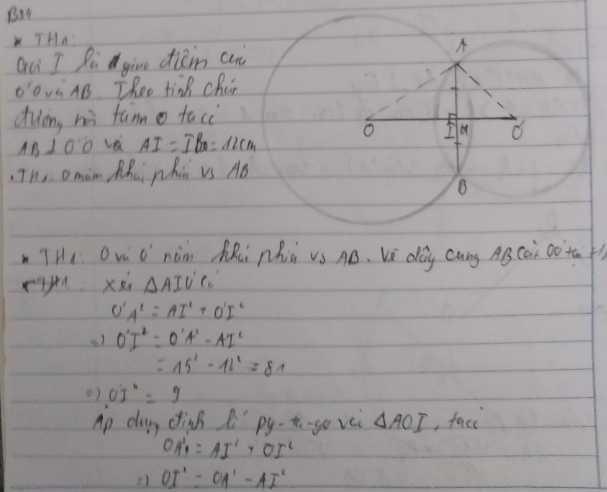 B34
* TH1:
Gọi I là giao điểm của
O'O và AB. Theo tính chất
đường nối tâm O ta có
AB ⊥ O'O và AI = IB = 12cm
. TH1. O nằm khác phía vs AB
A
O
I
O'
B
* TH1: O và O' nằm khác phía vs AB. Vẽ dây cung AB cắt OO' tại H
TH1: Xét ΔAIO' có
O'A² = AI² + O'I²
=> O'I² = O'A² - AI²
= 15² - 12² = 81
=> O'I = 9
Áp dụng định lí py-ta-go với ΔAOI, ta có
OA² = AI² + OI²
=> OI² = OA² - AI²